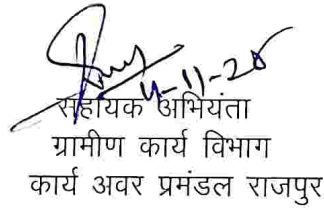 4-11-20
सहायक अभियंता
ग्रामीण कार्य विभाग
कार्य अवर प्रमंडल राजपुर